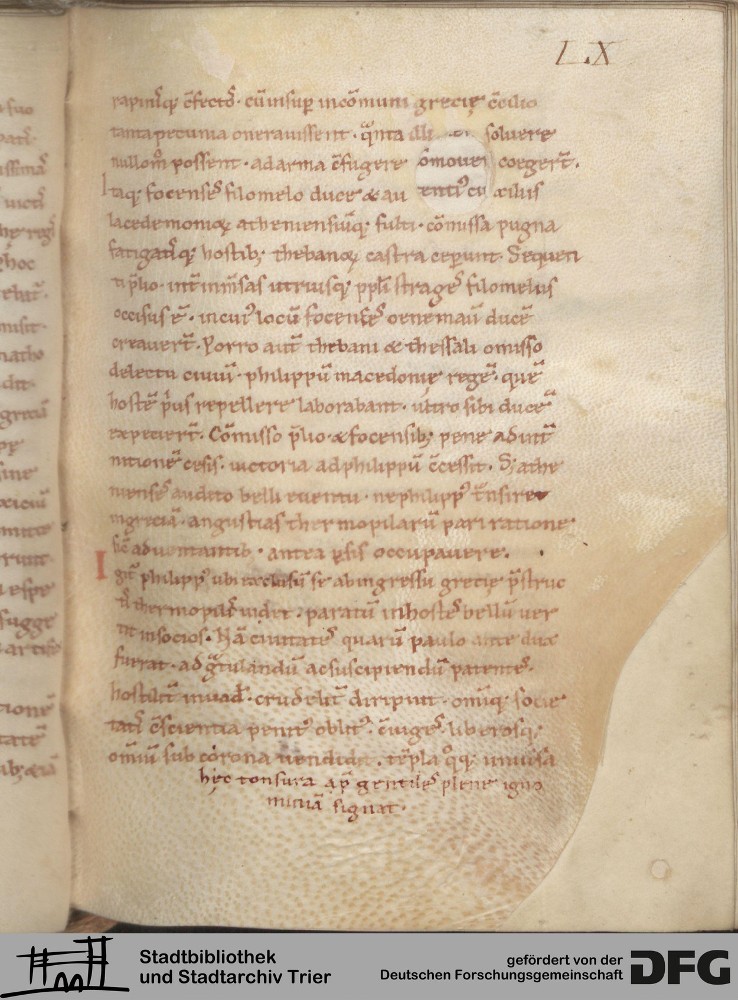 L.X
rapinisq; c̄fectos̄. cū insup in cōmuni grecię c̄cilio
tanta pecunia onerauissent. q̄nta illi soluere
nullom̊ possent. ad arma c̄fugere cōmouer coegert̄.
Itaq; focenses̄ filomelo duce & au xilus
lacedemonioꝝ atheniensiūq; fulti. cōmissa pugna
fatigatisq; hostib; thebanoꝝ castra cepunt. Sequen
ti p̄lio. int̄ inm̄sas utriusq; ppl̄i strages̄ filomelus
occisus ē. in cui' locū focenses̄ oenemaū ducē
creauert̄. Porro aut̄ thebani & thessali omisso
delectu ciuiū. philippū macedonię regē. quē
hostē p̄us repellere laborabant. ultro sibi ducē
expetiert̄. Cōmisso p̄lio & focensib; pene ad int̄
nitionē cesis. uictoria ad philippū c̄cessit. S; athe
nienses̄ audito belli euentu. ne philipp' t̄nsiret
in greciā. angustias thermopilarū pari ratione
sic̄ aduentantib. antea psis occupauere.
Igit̄ philipp' ubi exclusū se ab ingressu grecię p̄struc
tis̄ thermopilis̄ uidet. paratū in hostes̄ bellū uer
tit in socios. Nā ciuitates̄ quarū paulo ante dux
fuerat. ad ḡtulandū ac suscipiendū patentes̄.
hostilit̄ inuadit̄. crudelit̄ diripuit. omīq; socie
tatis̄ c̄scientia penit' oblit'. c̄iuges̄ liberosq;
omīū sub corona uendidit. tēpla q̊q; uniuisa
hęc tonsura ap̄ gentiles̄ plene igno
miniā signat.
Stadtbibliothek
und Stadtarchiv Trier
gefördert von der
Deutschen Forschungsgemeinschaft
DFG